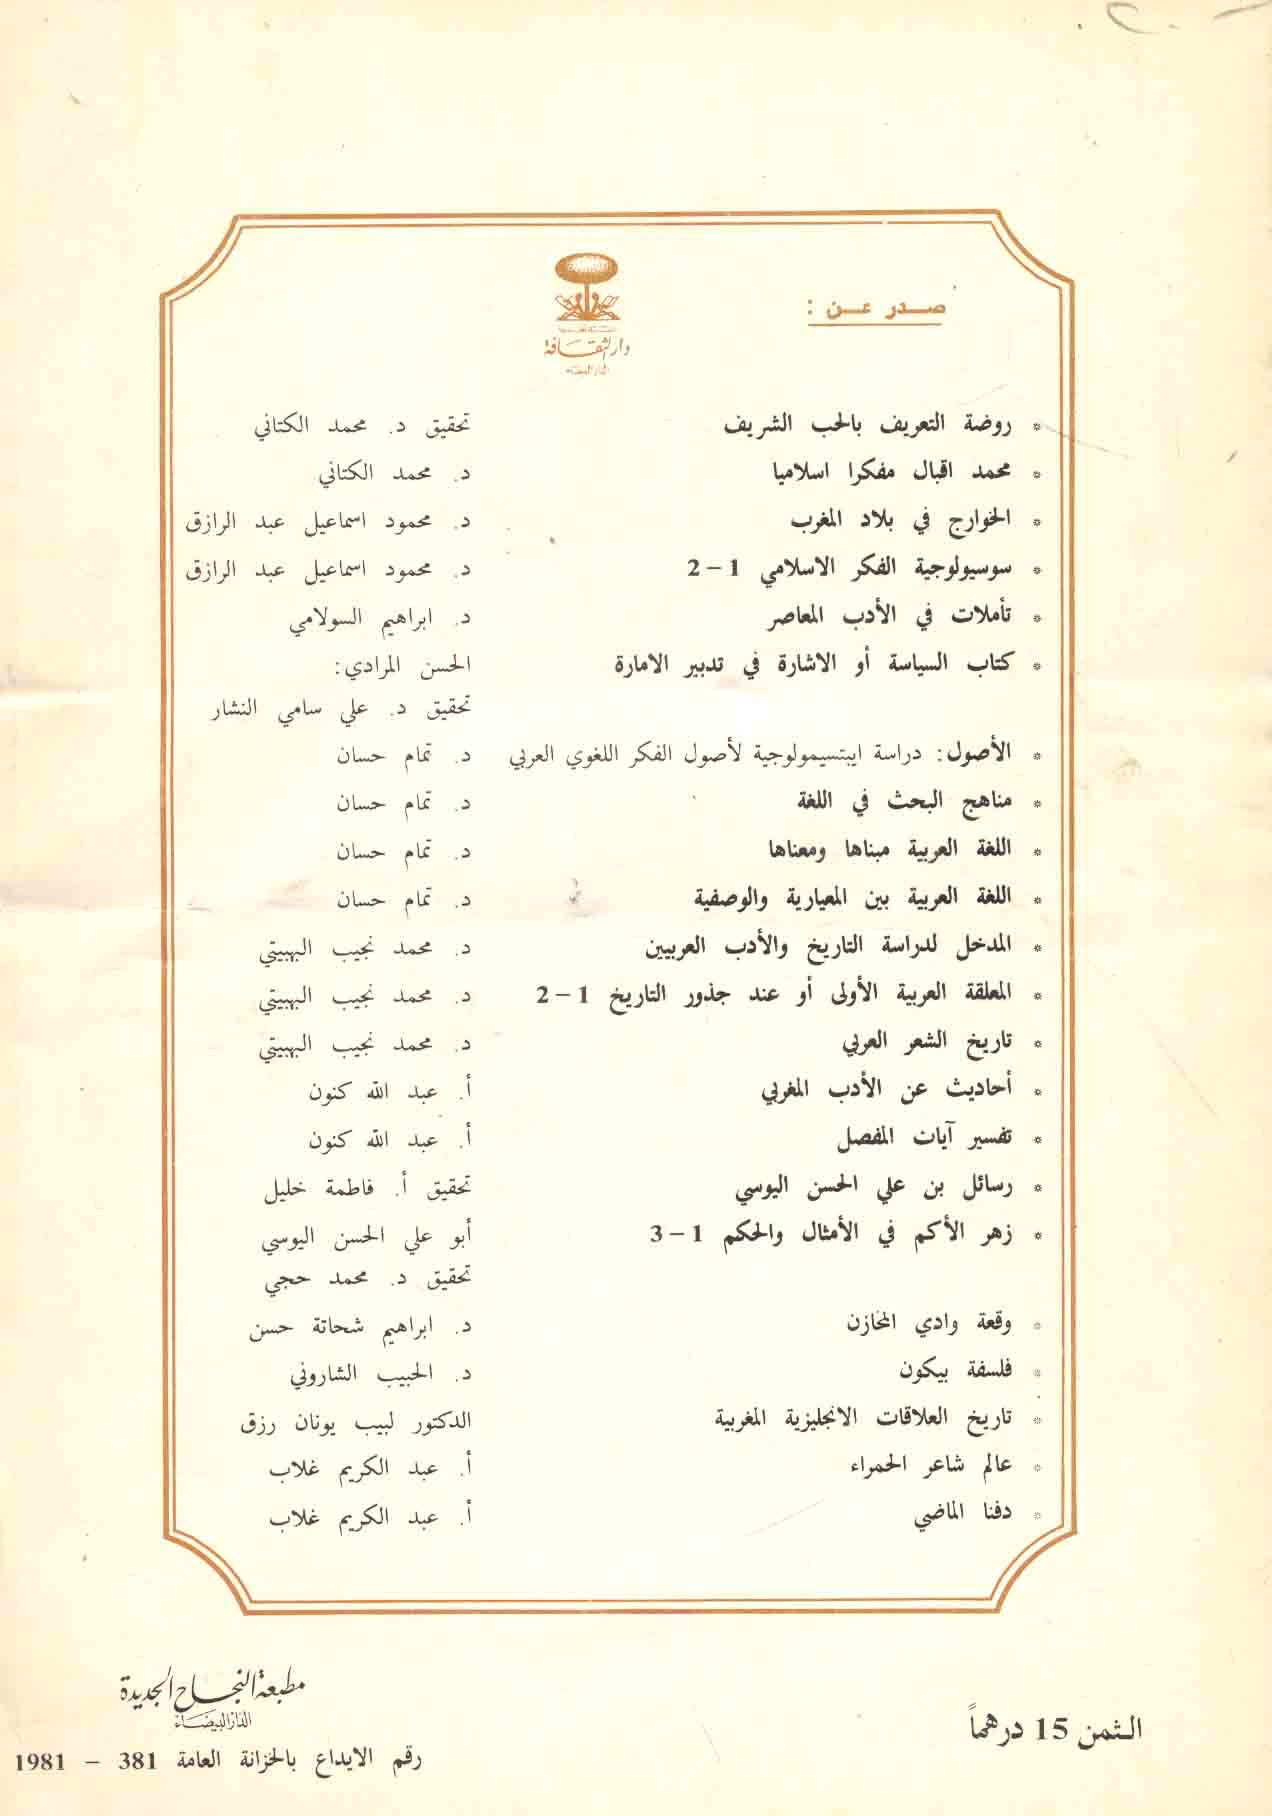 صدر عن :
دار الثقافة
* روضة التعريف بالحب الشريف تحقيق د. محمد الكتاني
* محمد اقبال مفكرا اسلاميا د. محمد الكتاني
* الخوارج في بلاد المغرب د. محمود اسماعيل عبد الرازق
* سوسيولوجية الفكر الاسلامي 1 – 2 د. محمود اسماعيل عبد الرازق
* تأملات في الأدب المعاصر د. ابراهيم السولامي
* كتاب السياسة أو الاشارة في تدبير الامارة الحسن المرادي:
تحقيق د. علي سامي النشار
* الأصول: دراسة ايبتسيمولوجية لأصول الفكر اللغوي العربي د. تمام حسان
* مناهج البحث في اللغة د. تمام حسان
* اللغة العربية مبناها ومعناها د. تمام حسان
* اللغة العربية بين المعيارية والوصفية د. تمام حسان
* المدخل لدراسة التاريخ والأدب العربيين د. محمد نجيب البهبيتي
* المعلقة العربية الأولى أو عند جذور التاريخ 1 – 2 د. محمد نجيب البهبيتي
* تاريخ الشعر العربي د. محمد نجيب البهبيتي
* أحاديث عن الأدب المغربي أ. عبد الله كنون
* تفسير آيات المفصل أ. عبد الله كنون
* رسائل بن علي الحسن اليوسي تحقيق أ. فاطمة خليل
* زهر الأكم في الأمثال والحكم 1 – 3 أبو علي الحسن اليوسي
تحقيق د. محمد حجي
* وقعة وادي المخازن د. ابراهيم شحاتة حسن
* فلسفة بيكون د. الحبيب الشاروني
* تاريخ العلاقات الانجليزية المغربية الدكتور لبيب يونان رزق
* عالم شاعر الحمراء أ. عبد الكريم غلاب
* دفنا الماضي أ. عبد الكريم غلاب
مطبعة النجاح الجديدة
الدار البيضاء
الثمن 15 درهماً
رقم الايداع بالخزانة العامة 381 – 1981